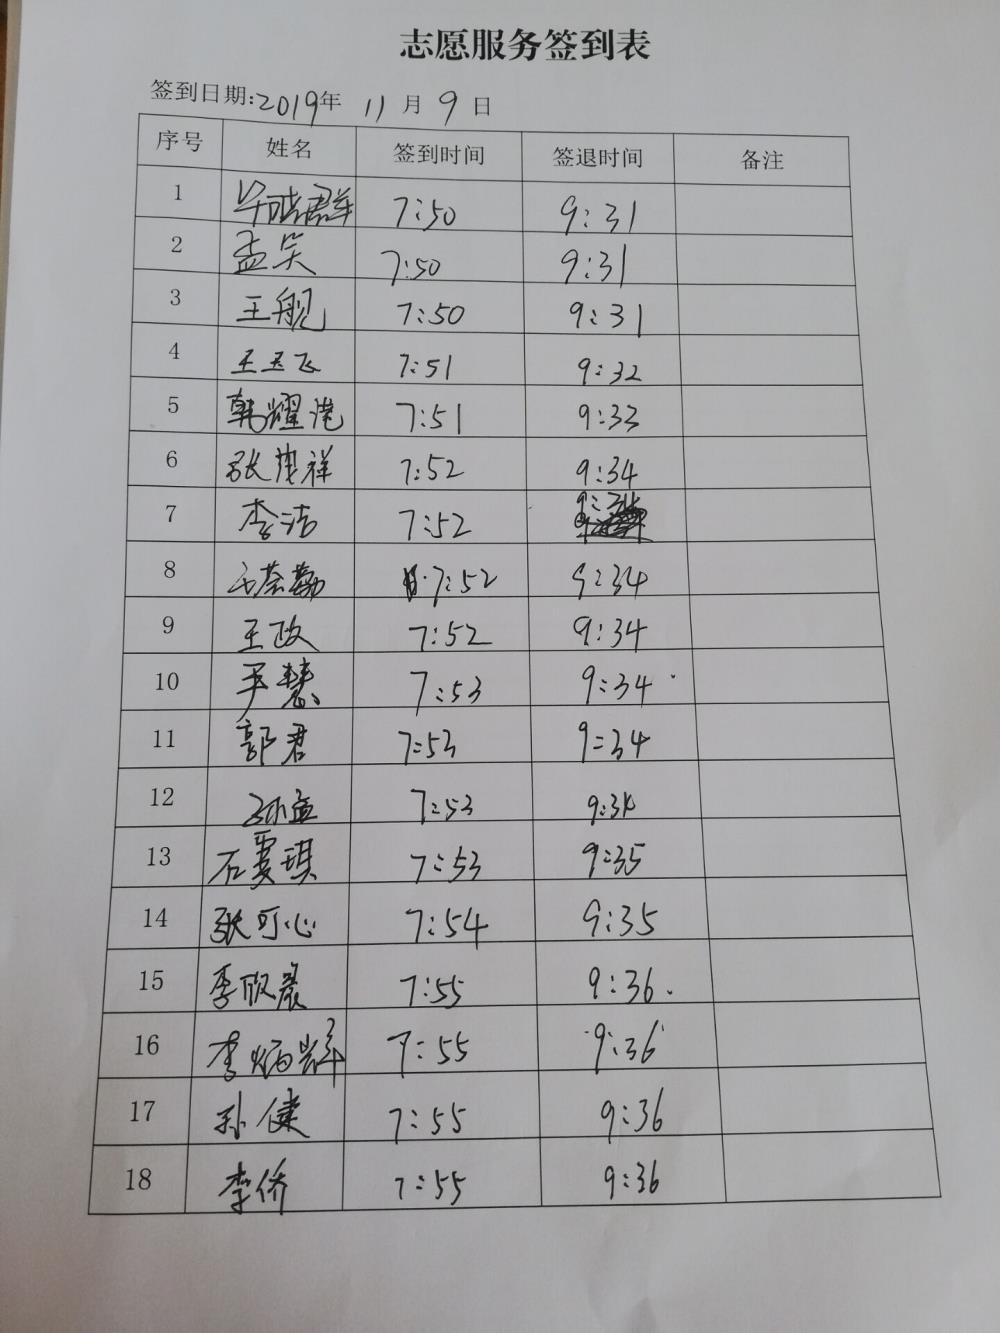 志愿服务签到表
签到日期:2019年 11月 9日
序号 姓名 签到时间 签退时间 备注
1 毕皓群 7:50 9:31
2 孟笑 7:50 9:31
3 王舰 7:50 9:31
4 王玉飞 7:51 9:32
5 韩耀港 7:51 9:33
6 张茂祥 7:52 9:34
7 李洁 7:52 9:34
8 7:52 9:34
9 王政 7:52 9:34
10 尹慧 7:53 9:34
11 郭君 7:53 9:34
12 孙孟 7:53 9:34
13 石夏琪 7:53 9:35
14 张可心 7:54 9:35
15 李欣晨 7:55 9:36
16 李炳辉 7:55 9:36
17 孙健 7:55 9:36
18 李侨 7:55 9:36